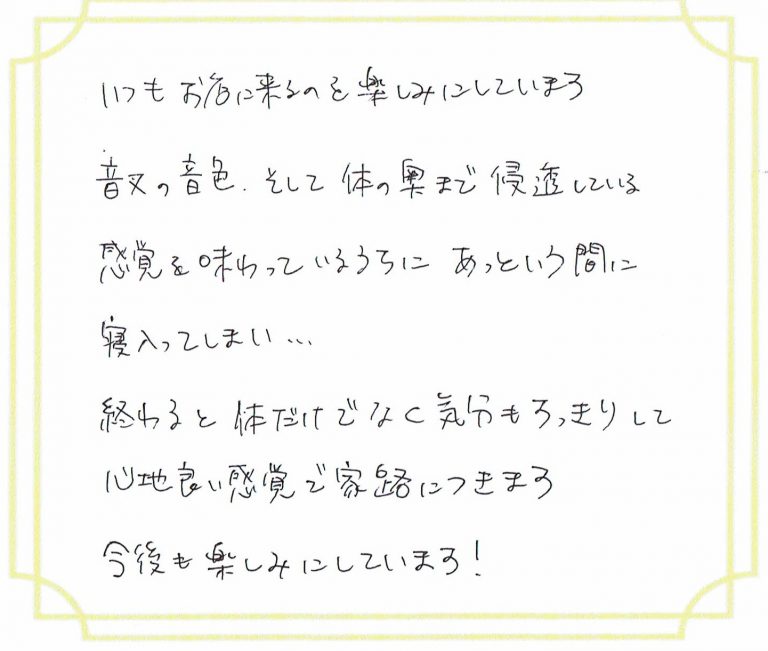 いつもお店に来るのを楽しみにしています
音叉の音色.そして体の奥まで浸透している
感覚を味わっているうちにあっという間に
寝入ってしまい…
終わると体だけでなく気分もすっきりして
心地良い感覚で家路につきます
今後も楽しみにしています！